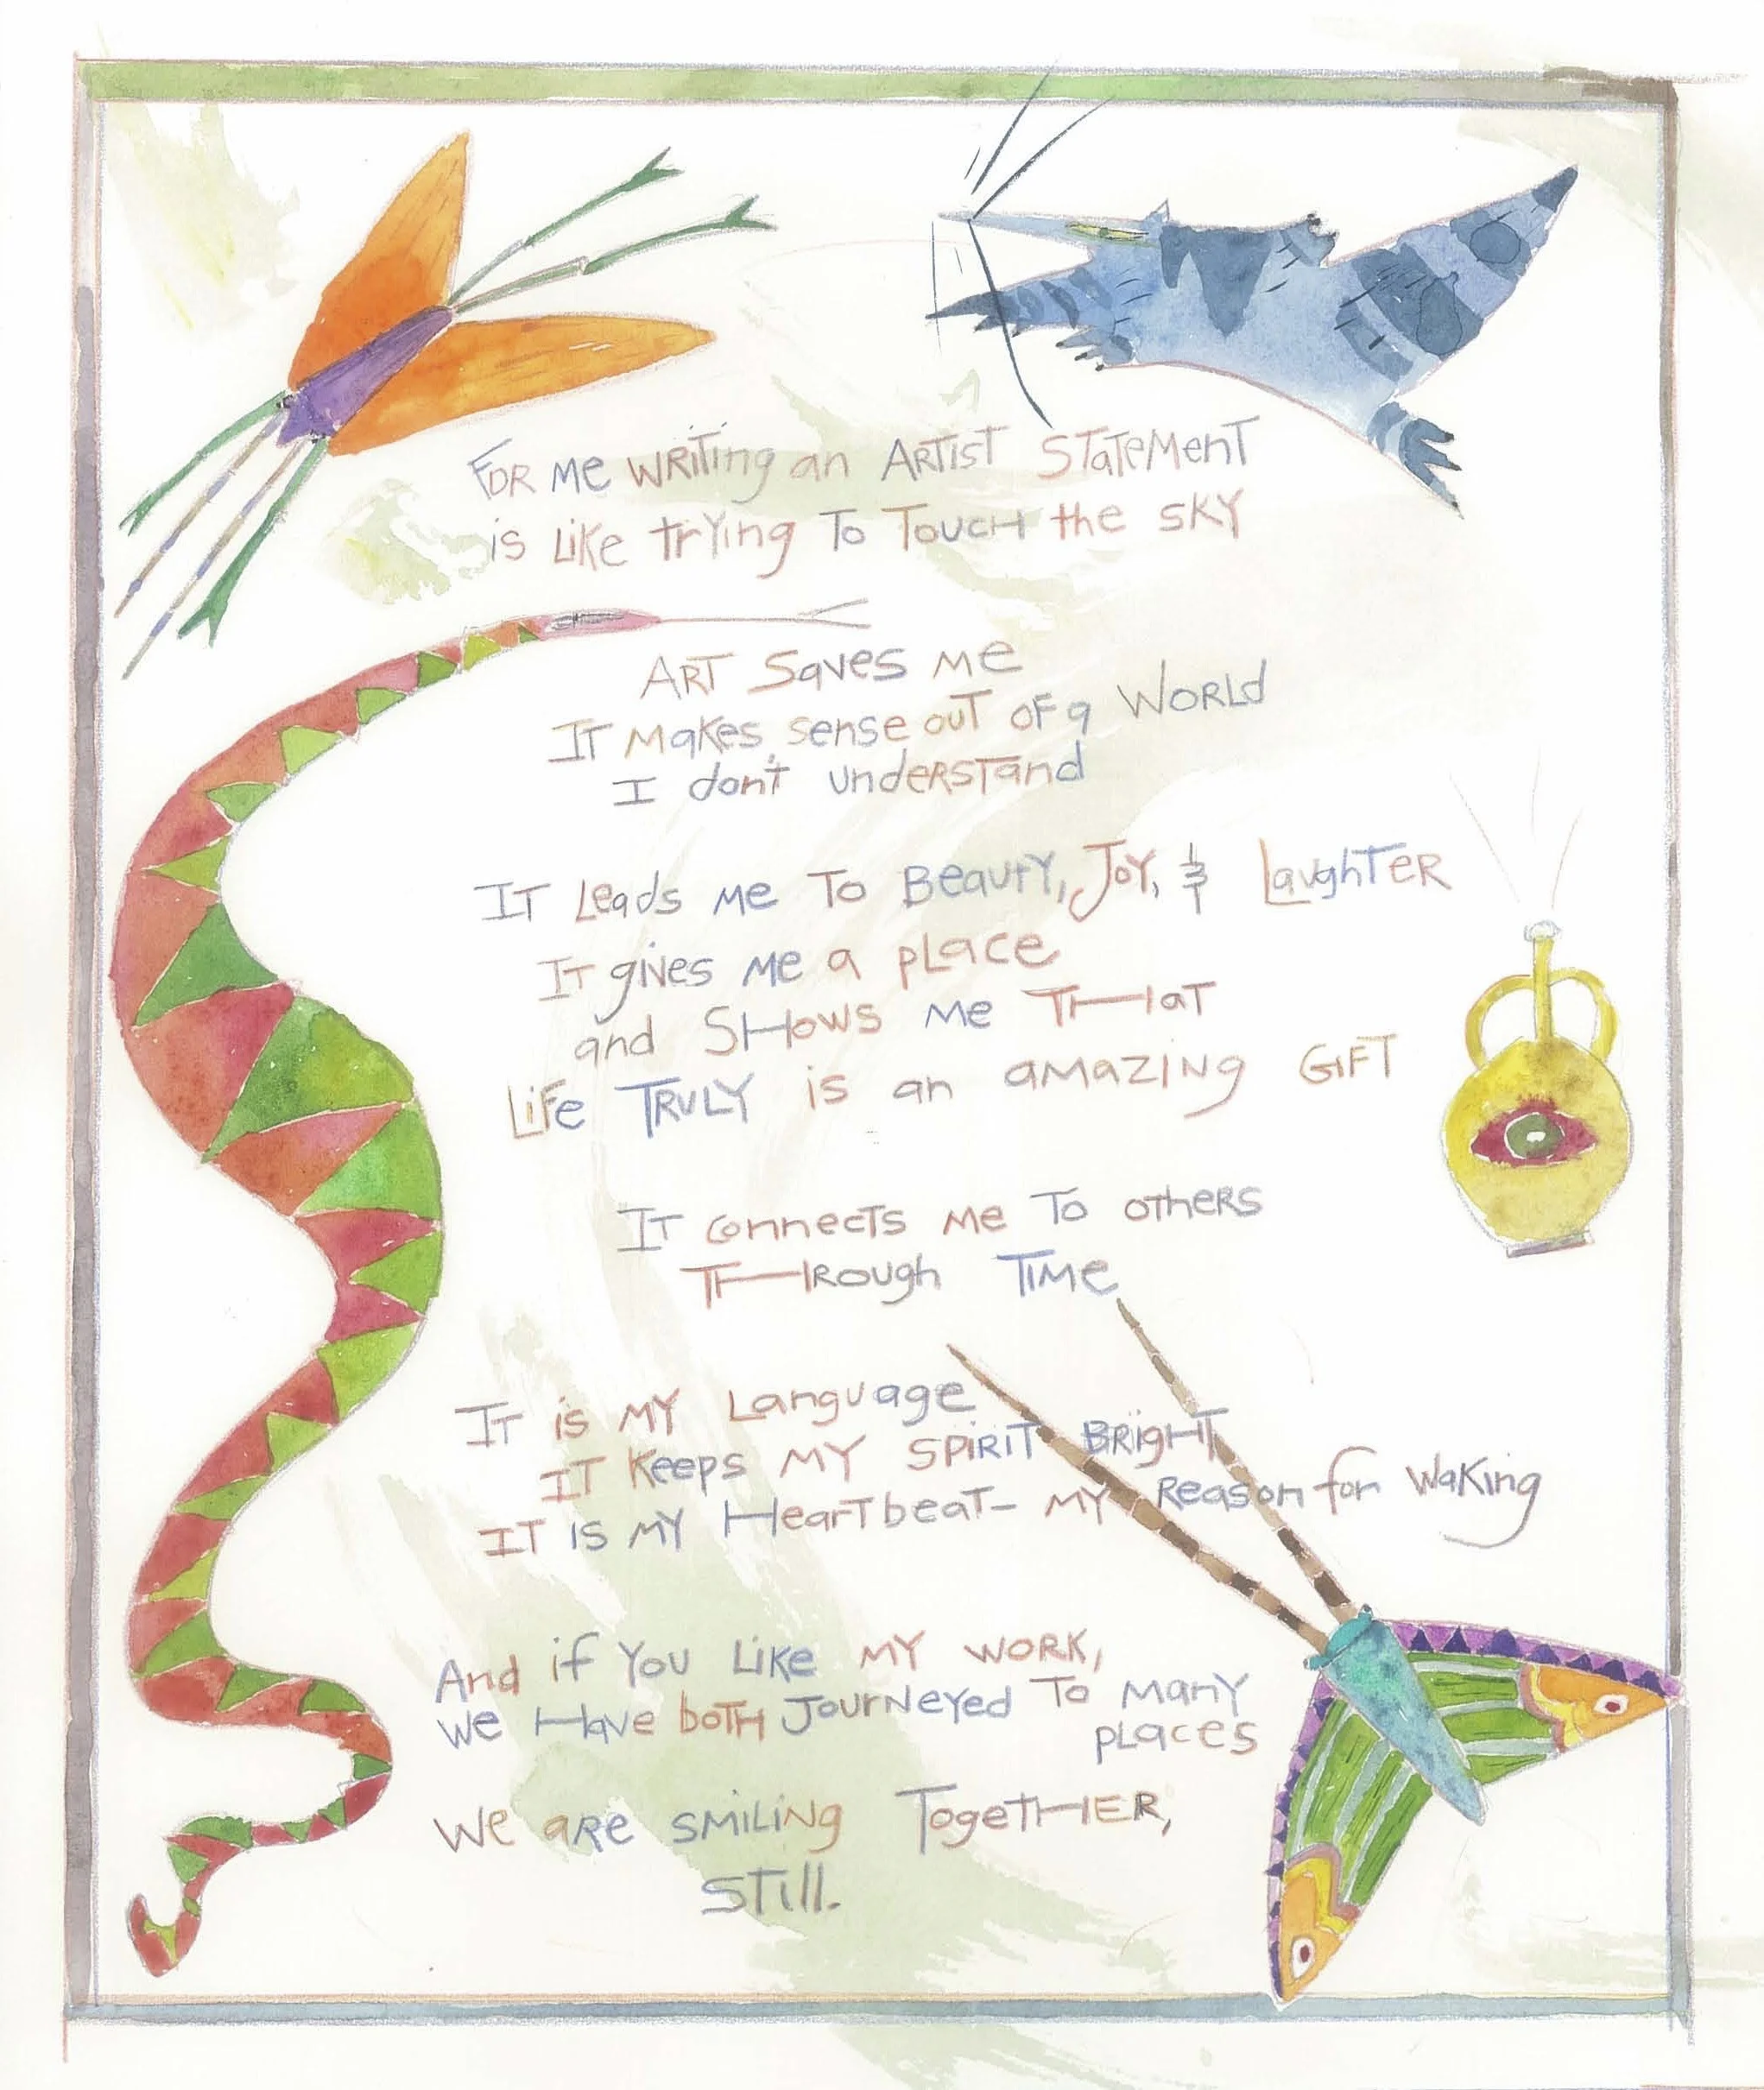 For me writing an Artist Statement
is like trying to touch the sky
Art saves me
It makes sense out of a world
I don't understand
It leads me to Beauty, Joy, & Laughter
It gives me a place
and shows me that
Life truly is an amazing gift
It connects me to others
through time
It is my language
It keeps my spirit bright
It is my Heartbeat- my Reason for waking
And if you like my work,
we have both journeyed to many
places
We are smiling together,
still.